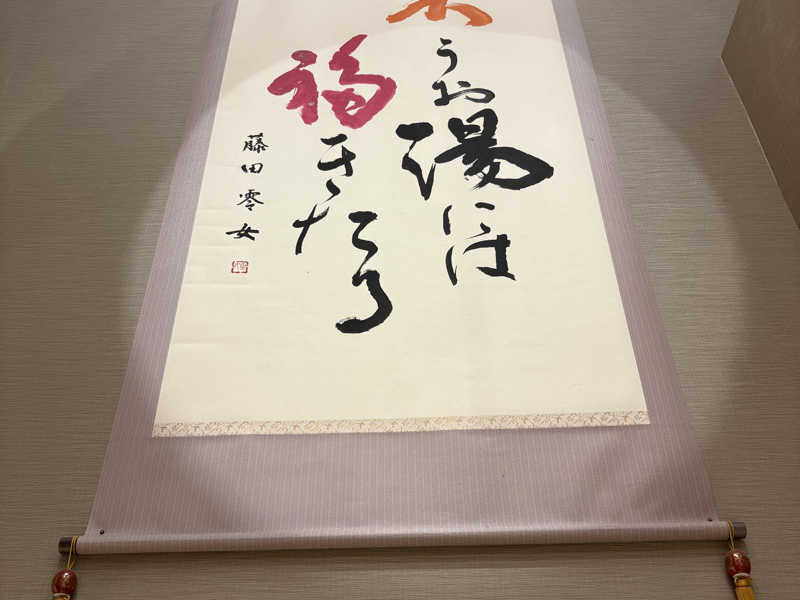 うお湯には
福きたる
藤田零女